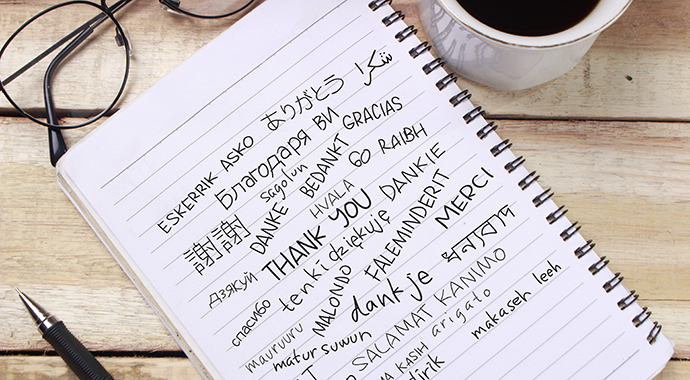 ありがとう شكرا
ESKERRIK ASKO
Благодаря ВИ
GRACIAS
sagolun
BEDANKT
GO RAIBH
謝謝
DANKE
HVALA
THANK YOU
DANKIE
дзякуй
tenki
dziękuję
FALEMINDERIT
MERCI
спасибо
MALONDO
dank je
ধন্যবাদ
mauruuru
matur suwun
SALAMAT
KANIMO
arigato
makaseh leeh
KASIH